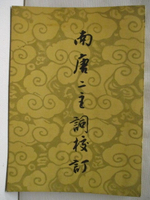 南唐二主詞校訂